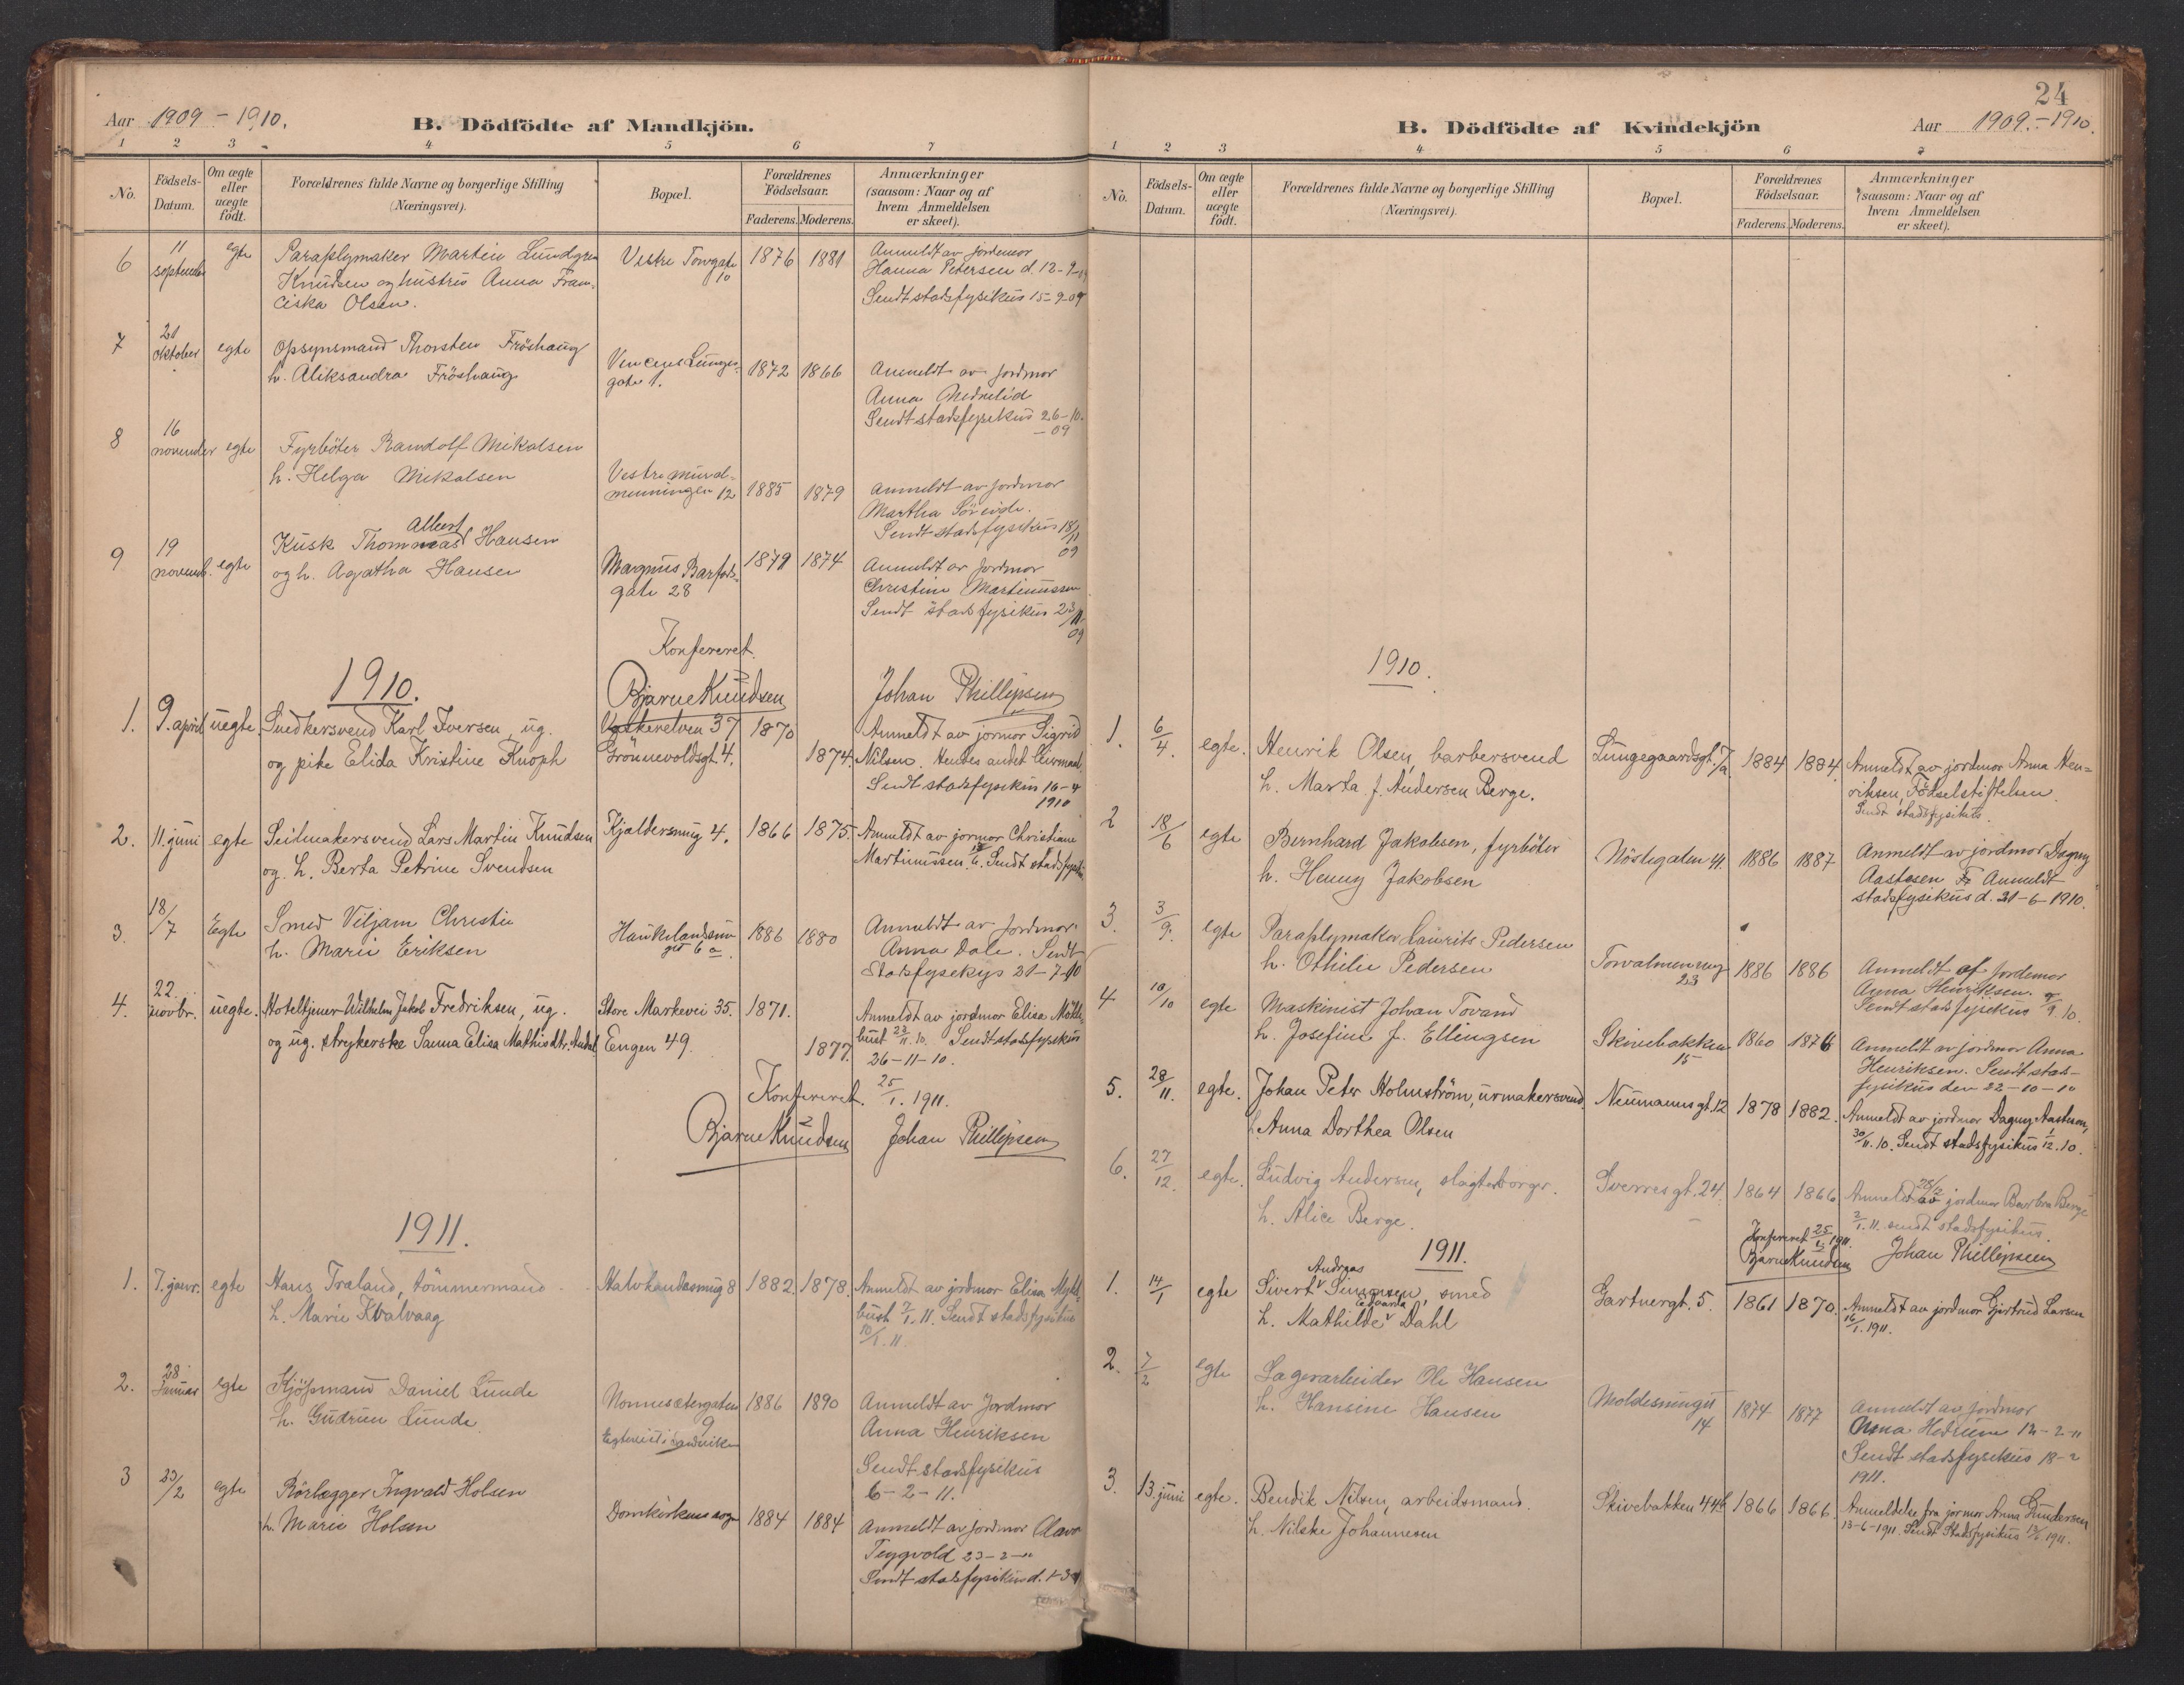 Aar 1909 - 1910.
B. Dödfödte af Mandkjön.
1 2 3 4 5 6 7
No.
Födsels-
Datum.
Om ægte
eller
uægte
født.
Forældrenes fulde Navne og borgerlige Stilling
(Næringsvei).
Bopæl.
Forældrenes
Födselsaar.
Faderens. Moderens.
Anmærkninger
(saasom: Naar og af
hvem Anmeldelsen
er skeet).
6 11 september egte
Paraplymaker Martin Lundgren
Knudsen og hustru Anna Fran-
ciska Olsen.
Vestre Torvgate
10
1876 1881
Anmeldt av jordemor
Hanna Petersen d. 12-9-09
Sendt stadsfysikus 15-9-09
7 21 oktober egte
Opsynsmand Thorsten Fröshaug
h. Aliksandra Fröshaug
Vincens Lunges-
gate 1.
1872 1866
Anmeldt av jordmor
Anna
Sendt stadsfysikus 26-10-
-09
8 16 november egte
Fyrböter Randolf Mikalsen
h. Helga Mikalsen
Vestre mural-
menningen 12
1885 1879
Anmeldt av jordmor
Martha
Sendt stadsfysikus 18/11
09
9 19 novemb. egte
Albert
Kusk Thommas Hansen
og h. Agatha Hansen
Magnus Barfods-
gate 28
1879 1874
Anmeldt av jordmor
Christine Martinussen
Sendt stadsfysikus 23/11
09
Konfereret.
Bjarne Knudsen Johan Phillipsen
1910.
1. 9. april uegte.
Snedkersvend Karl Iversen, ug.
og pike Elida Kristine Knoph
37
Grönnevoldsgt. 4.
1870
1874.
Anmeldt av jormor Sigrid
Nilsen. Hendes andet leiermaal.
Sendt stadsfysikus 16-4
1910
2. 11. juni egte
Seilmakersvend Lars Martin Knudsen
og h. Berta Petrine Svendsen
Kjaldersmug 4.
1866 1875.
Anmeldt av jormor Christiane
Martinussen Sendt stadsfysikus
3. 18/7 Egte
Smed Viljam Christie
h. Marie Eriksen
6 a
1886 1880
Anmeldt av jordmor
Anna Dale. Sendt
Stadsfysekys 21-7-10
4. 22. novbr. uegte.
Hoteltjener Wilhelm Jakob Fredriksen, ug.
og ug. strykerske Sanna Elisa Mathisdtr. Andal
Store Markevei 35.
Engen 49.
1871.
1877.
Anmeldt av jordmor Elisa Mykle-
bust 23/11.10. Sendt stadsfysikus
26-11-10.
Konfereret. 25/1. 1911.
Bjarne Knudsen Johan Phillipsen
1911.
1. 7. janr. egte
Hans Traland, tömmermand.
h. Marie Kvalvaag
Halvkandesmug 8
1882. 1878.
Anmeldt av jordmor Elisa Mykle-
bust 7/1. 11. Sendt stadsfysikus
10/1. 11.
2. 28 Januar egte
Kjöpmand Daniel Lunde
h. Gudrun Lunde
Nonnesætergaten
9
1886 1890
Anmeldt av Jordmor
Anna Henriksen
Sendt stadsfysikus
6-2-11.
3 23/2 egte
Rörlægger Ingvald Holsen
h. Marie Holsen
Domkirkens sogn
1884 1884
Anmeldt av jordmor Olava
23-2-11
Sendt stadsfysikus d.
24
B. Dödfödte af Kvindekjön
Aar 1909.-1910.
1 2 3 4 5 6 7
No.
Födsels-
Datum.
Om ægte
eller
uægte
født.
Forældrenes fulde Navne og borgerlige Stilling
(Næringsvei).
Bopæl.
Forældrenes
Födselsaar.
Faderens. Moderens.
Anmærkninger
(saasom: Naar og af
hvem Anmeldelsen
er skeet).
1910.
1. 6/4. egte.
Henrik Olsen, barbersvend
h. Marta f. Andersen Berge.
Lungegaardsgt. 7/a
1884 1884.
Anmeldt av jordmor Anna Hen-
riksen, Födselstiftelsen.
Sendt stadsfysikus.
2 18/6 egte
Bernhard Jakobsen, fyrböter
h. Henny Jakobsen
Nöstegaten 41.
1886 1887
Anmeldt av jordmor Dagny
Aastesen Anmeldt
stadsfysikus d. 21-6-1910.
3. 3/9. egte
Paraplymaker Laurits Pedersen
h. Othilie Pedersen
Torvalmenning
23
1886 1886
Anmeldt af jordemor
Anna Henriksen.
Sendt stadsfysikus 9/9.10.
4 10/10 egte
Maskinist Johan Tovand
h. Josefine f. Ellingsen
Skinebakken
15
1860 1876
Anmeldt av jordmor Anna
Henriksen. Sendt stads-
fysikus den 22-10-10
5. 28/11. egte.
Johan Peter Holmström, urmakersvend.
h. Anna Dorthea Olsen
Neumannsgt. 12
1878 1882.
Anmeldt av jordmor Dagny Aastesen,
30/11.10. Sendt stadsfysikus 1/12.10.
6. 27/12. egte.
Ludvig Andersen, slagterborger.
h. Alice Berge.
Sverresgt. 24.
1864 1866
Anmeldt av 28/12 jordmor Barbra Berge
2/1. 11. sendt stadsfysikus.
Konfereret 25/1 1911.
Bjarne Knudsen Johan Phillipsen
1911.
1. 14/1 egte
Andreas
Sivert Simonsen, smed
Edvarda
h. Mathilde Dahl
Gartnergt. 5.
1861 1870.
Anmeldt av jordmor Gjertrud Larsen
16/1. 1911.
2. 7/2 egte
Lagerarbeider Ole Hansen
h. Hansine Hansen
Moldesmuget
14
1874 1877
Anmeldt av jordmor
Anna 12-2-11
Sendt stadsfysikus 18-2
1911.
3. 13. juni egte.
Bendik Nilsen, arbeidsmand.
h. Nilske Johannesen
Skivebakken 44b
1866 1866.
Anmeldelse fra jormor Anna Gundersen
13-6-1911. Sendt Stadsfysikus 1911.